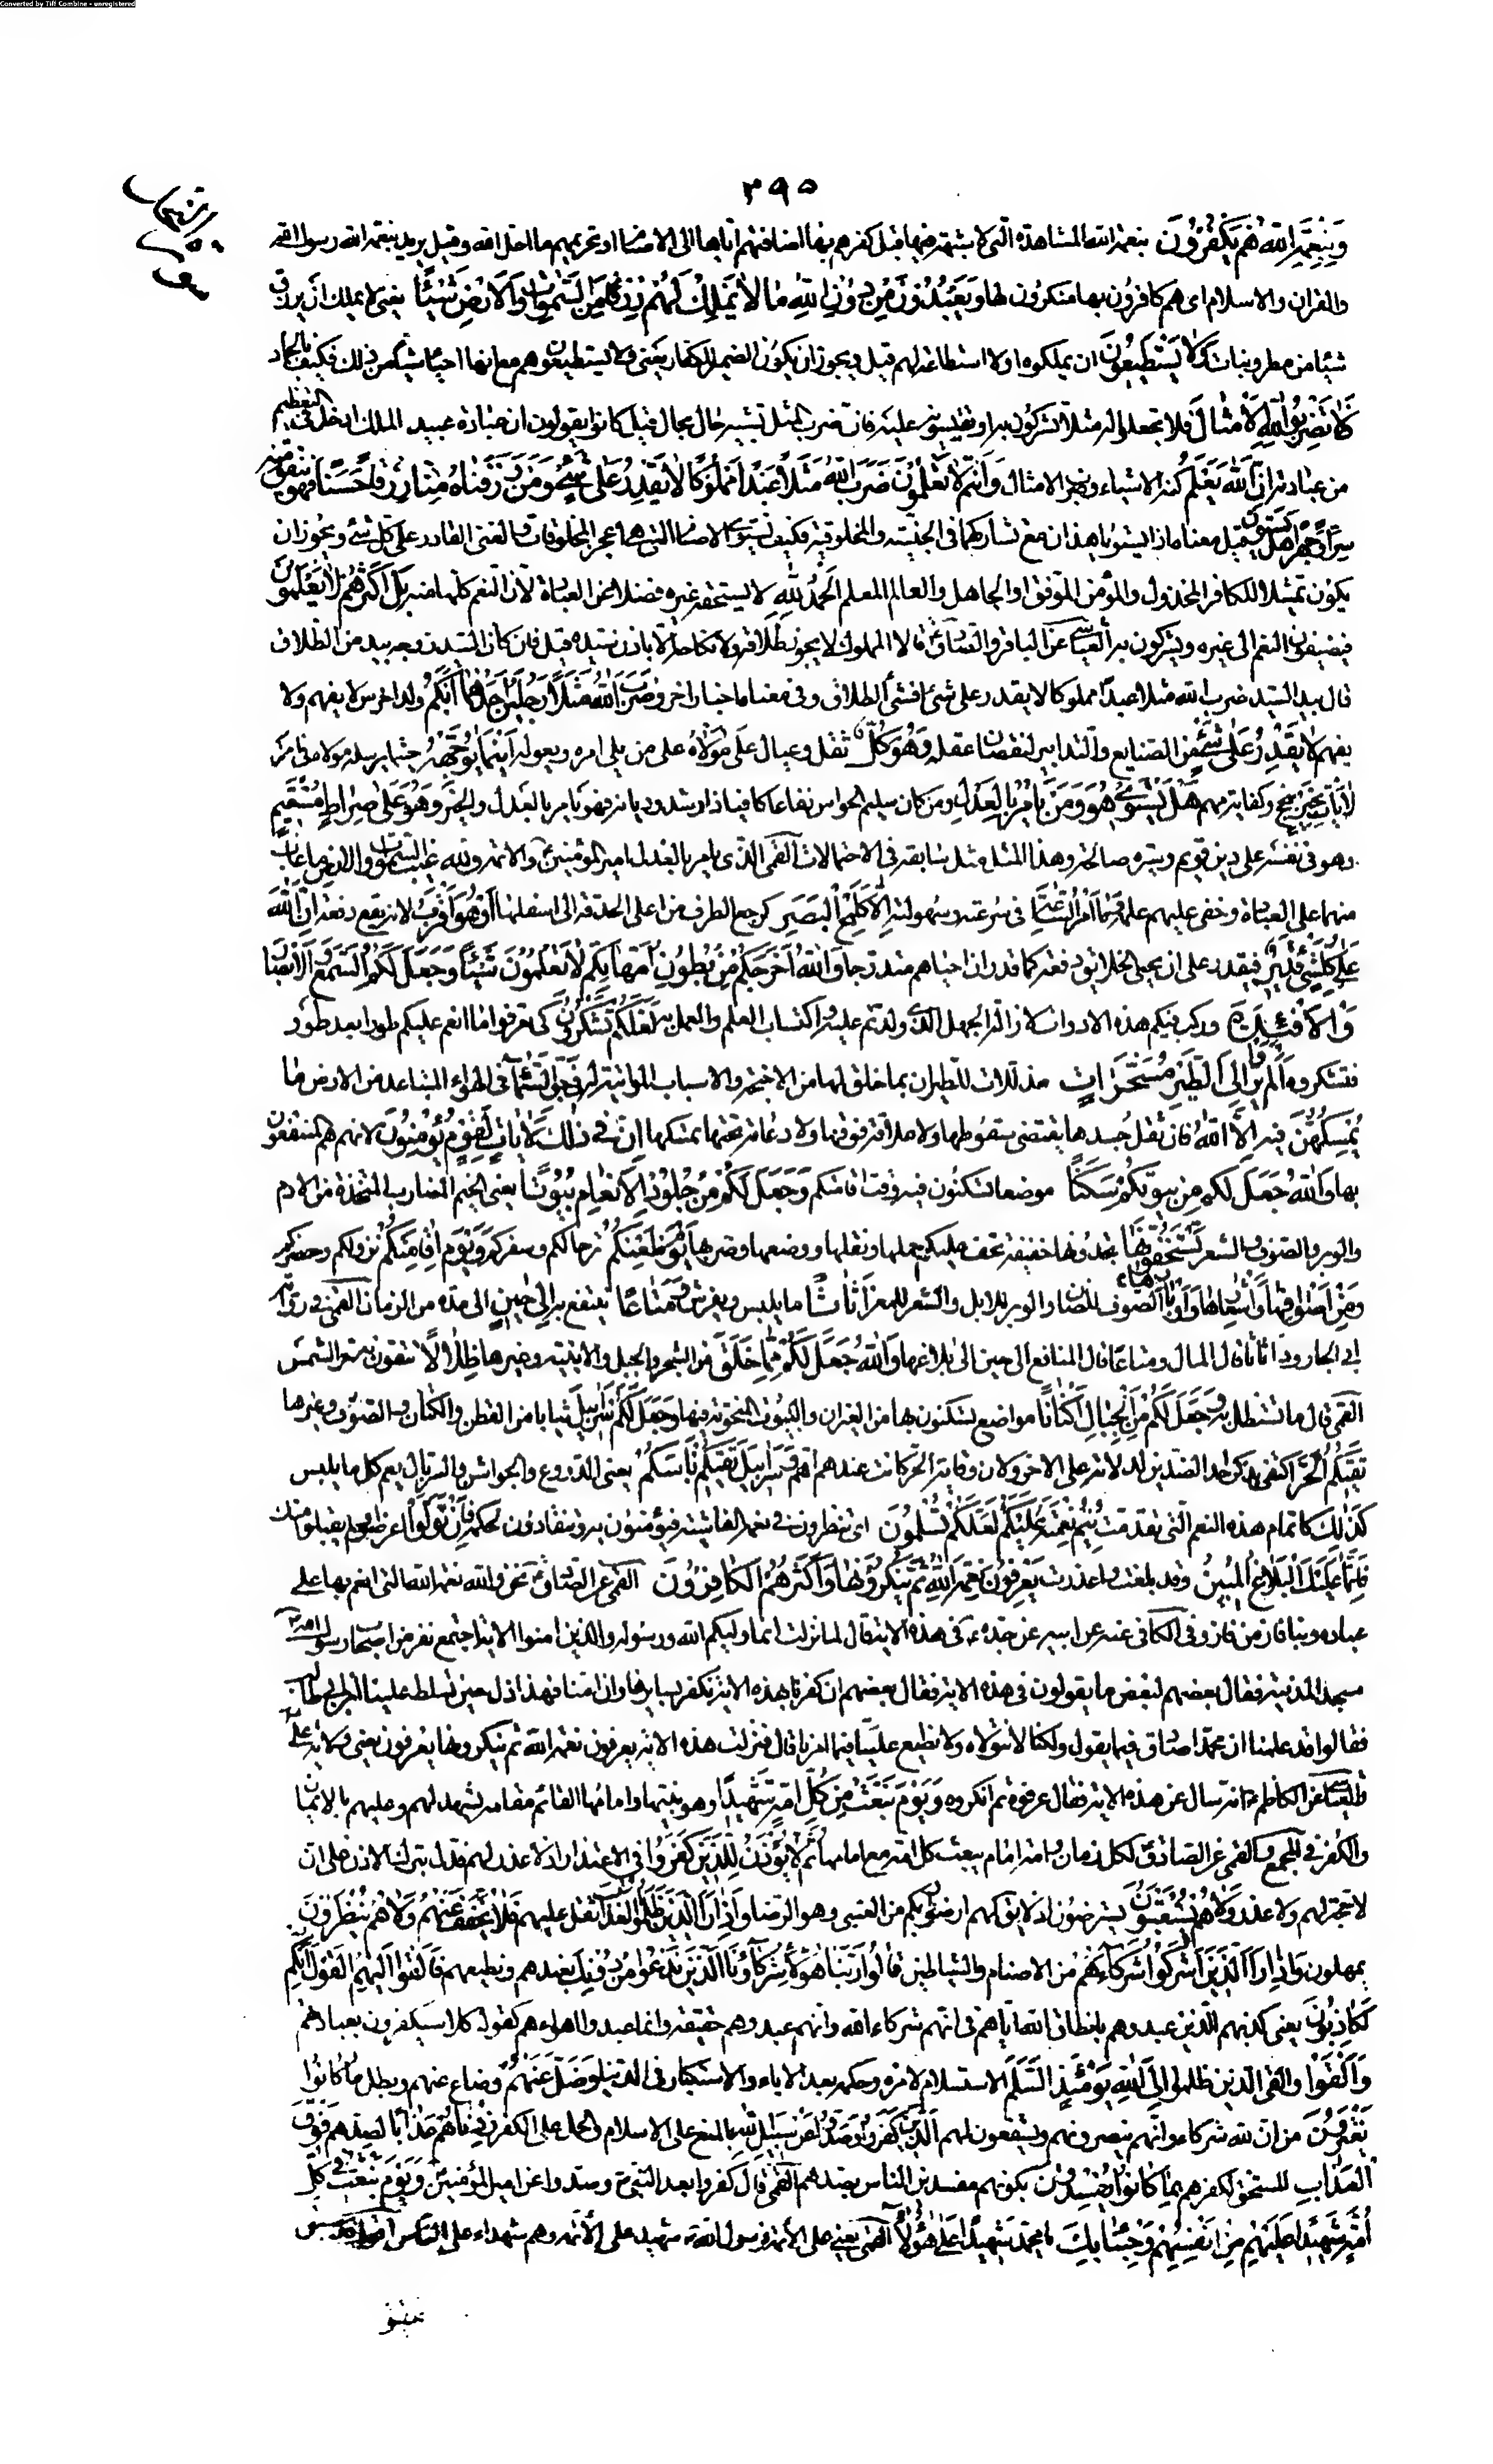 Converted by Tiff Combine - unregistered
٣٩٥
وَبِنِعْمَةِ اللهِ هُمْ يَكْفُرُونَ بنعمة الله المشاهدة التى لا شبهة فيها قيل كفرهم بها اضافتهم اياها الى الاصنام او تحريمهم ما احل الله وقيل يريد بنعمة الله رسول الله
والقران والاسلام اى هم كافرون بها منكرون لها وَيَعْبُدُونَ مِنْ دُونِ اللهِ مَا لَا يَمْلِكُ لَهُمْ رِزْقًا مِنَ السَّمٰوَاتِ وَالْاَرْضِ شَيْئًا يعنى لا يملك ان يرزق
شيئا من مطر ونبات وَلَا يَسْتَطِيعُونَ ان يملكوه او لا استطاعة لهم قيل ويجوز ان يكون الضمير للكفار يعنى ولا يستطيعون هم مع انهم احياء شيئا من ذلك فكيف بالجماد
فَلَا تَضْرِبُوا لِلّٰهِ الْاَمْثَالَ فلا تجعلوا له مثلا تشركون به او تقيسونه عليه فان ضرب المثل تشبيه حال بحال قيل كانوا يقولون ان عبادة عبيد الملك ادخل فى التعظيم
من عبادته اِنَّ اللهَ يَعْلَمُ كنه الاشياء وضرب الامثال وَاَنْتُمْ لَا تَعْلَمُونَ ضَرَبَ اللهُ مَثَلًا عَبْدًا مَمْلُوكًا لَا يَقْدِرُ عَلٰى شَيْءٍ وَمَنْ رَزَقْنَاهُ مِنَّا رِزْقًا حَسَنًا فَهُوَ يُنْفِقُ مِنْهُ
سِرًّا وَجَهْرًا هَلْ يَسْتَوُونَ قيل معناه اذا لم يستويا هذان مع تشاركهما فى الجنسية والمخلوقية فكيف يستوى الاصنام التى هى اعجز المخلوقات والغنى القادر على كل شئ ويجوز ان
يكون تمثيلا للكافر المخذول والمؤمن الموفق او الجاهل والعالم المعلم اَلْحَمْدُ لِلّٰهِ لا يستحقه غيره فضلا عن العبادة لان النعم كلها منه بَلْ اَكْثَرُهُمْ لَا يَعْلَمُونَ
فيضيفون النعم الى غيره ويشركون به العياشى عن الباقر والصادق ع قالا المملوك لا يجوز طلاقه ولا نكاحه الا باذن سيده قيل فان كان السيد زوجه بيد من الطلاق
قال بيد السيد ضرب الله مثلا عبدا مملوكا لا يقدر على شئ افشئ الطلاق وفى معناه اخبار اخر وَضَرَبَ اللهُ مَثَلًا رَجُلَيْنِ اَحَدُهُمَا اَبْكَمُ ولد اخرس لا يفهم ولا
يفهم لَا يَقْدِرُ عَلٰى شَيْءٍ من الصنايع والتدابير لنقصان عقله وَهُوَ كَلٌّ ثقل وعيال عَلٰى مَوْلَاهُ على من يلى امره ويعوله اَيْنَمَا يُوَجِّهْهُ حيثما يرسله مولاه فى امر
لَا يَأْتِ بِخَيْرٍ بنجح وكفاية مهم هَلْ يَسْتَوِى هُوَ وَمَنْ يَأْمُرُ بِالْعَدْلِ ومن كان سليم الحواس نفاعا كافيا ذا رشد وديانة فهو يامر بالعدل والخير وَهُوَ عَلٰى صِرَاطٍ مُسْتَقِيمٍ
وهو فى نفسه على دين قويم وسيرة صالحة وهذا المثل مثل سابقه فى الاحتمالات القمى الذى يامر بالعدل امير المؤمنين والائمة وَلِلّٰهِ غَيْبُ السَّمٰوَاتِ وَالْاَرْضِ ما غاب
منهما على العباد وخفى عليهم علمه وَمَا اَمْرُ السَّاعَةِ فى سرعته وسهولته اِلَّا كَلَمْحِ الْبَصَرِ كرجع الطرف من اعلى الحدقة الى اسفلها اَوْ هُوَ اَقْرَبُ لانه يقع دفعة اِنَّ اللهَ
عَلٰى كُلِّ شَيْءٍ قَدِيرٌ فيقدر على ان يحيى الخلائق دفعة كما قدر ان احياهم متدرجا وَاللهُ اَخْرَجَكُمْ مِنْ بُطُونِ اُمَّهَاتِكُمْ لَا تَعْلَمُونَ شَيْئًا وَجَعَلَ لَكُمُ السَّمْعَ وَالْاَبْصَارَ
وَالْاَفْئِدَةَ وركب فيكم هذه الادوات لازالة الجهل الذى ولدتم عليه واكتساب العلم والعمل به لَعَلَّكُمْ تَشْكُرُونَ كى تعرفوا ما انعم عليكم طورا بعد طور
فتشكروه اَلَمْ يَرَوْا اِلَى الطَّيْرِ مُسَخَّرَاتٍ مذللات للطيران بما خلق لها من الاجنحة والاسباب المواتية له فِى جَوِّ السَّمَآءِ فى الهواء المتباعد من الارض مَا
يُمْسِكُهُنَّ فيه اِلَّا اللهُ فان ثقل جسدها يقتضى سقوطها ولا علاقة فوقها ولا دعامة تحتها يمسكها اِنَّ فِى ذٰلِكَ لَاٰيَاتٍ لِقَوْمٍ يُؤْمِنُونَ لانهم هم المنتفعون
بها وَاللهُ جَعَلَ لَكُمْ مِنْ بُيُوتِكُمْ سَكَنًا موضعا تسكنون فيه وقت اقامتكم وَجَعَلَ لَكُمْ مِنْ جُلُودِ الْاَنْعَامِ بُيُوتًا يعنى الخيم المضارب المتخذة من الادم
والوبر والصوف والشعر تَسْتَخِفُّونَهَا تجدونها خفيفة تخف عليكم حملها ونقلها ووضعها وضربها يَوْمَ ظَعْنِكُمْ ترحالكم وسفركم وَيَوْمَ اِقَامَتِكُمْ نزولكم وحضركم
وَمِنْ اَصْوَافِهَا وَاَوْبَارِهَا وَاَشْعَارِهَا الصوف للضان والوبر للابل والشعر للمعز اَثَاثًا ما يلبس ويفرش وَمَتَاعًا ينتفع به اِلٰى حِينٍ الى مدة من الزمان القمى فى رواية
ابى الجارود اثاثا قال المال ومتاعا قال المنافع الى حين الى بلاغها وَاللهُ جَعَلَ لَكُمْ مِمَّا خَلَقَ من الشجر والجبل والابنية وغيرها ظِلَالًا تتقون به حر الشمس
القمى قال ما تستظل به وَجَعَلَ لَكُمْ مِنَ الْجِبَالِ اَكْنَانًا مواضع تسكنون بها من الغيران والبيوت المنحوتة فيها وَجَعَلَ لَكُمْ سَرَابِيلَ ثيابا من القطن والكتان والصوف وغيرها
تَقِيكُمُ الْحَرَّ اكتفى بذكر احد الضدين لدلالته على الاخر ولان وقاية الحر كانت عندهم اهم وَسَرَابِيلَ تَقِيكُمْ بَأْسَكُمْ يعنى الدروع والجواشن والسربال يعم كل ما يلبس
كَذٰلِكَ كاتمام هذه النعم التى تقدمت يُتِمُّ نِعْمَتَهُ عَلَيْكُمْ لَعَلَّكُمْ تُسْلِمُونَ اى تنظرون فى نعمه الفاشية فتؤمنون به وتنقادون لحكمه فَاِنْ تَوَلَّوْا اعرضوا ولم يقبلوا منك
فَاِنَّمَا عَلَيْكَ الْبَلَاغُ الْمُبِينُ وقد بلغت واعذرت يَعْرِفُونَ نِعْمَةَ اللهِ ثُمَّ يُنْكِرُونَهَا وَاَكْثَرُهُمُ الْكَافِرُونَ القمى عن الصادق ع نحن والله نعمة الله التى انعم بها على
عباده وبنا فاز من فاز وفى الكافى عنه عن ابيه عن جده ع فى هذه الاية قال لما نزلت انما وليكم الله ورسوله والذين امنوا الاية اجتمع نفر من اصحاب رسول الله
مسجد المدينة فقال بعضهم لبعض ما يقولون فى هذه الاية فقال بعضهم ان كفرنا بهذه الاية نكفر بسايرها وان امنا فهذا ذل حين تسلط علينا ابن ابى طالب
فقالوا قد علمنا ان محمدا صادق فيما يقول ولكنا لا نتولاه ولا نطيع عليا فيما امرنا قال فنزلت هذه الاية يعرفون نعمة الله ثم ينكرونها يعرفون يعنى ولاية على
والعياشى عن الكاظم ع انه سال عن هذه الاية فقال عرفوه ثم انكروه وَيَوْمَ نَبْعَثُ مِنْ كُلِّ اُمَّةٍ شَهِيدًا وهو نبيها وامامها القائم مقامه يشهد لهم وعليهم بالايمان
والكفر فى المجمع والقمى عن الصادق ع لكل زمان وامة امام يبعث كل امة مع امامها ثُمَّ لَا يُؤْذَنُ لِلَّذِينَ كَفَرُوا فى الاعتذار اذ لا عذر لهم فدل بترك الاذن على ان
لا حجة لهم ولا عذر وَلَا هُمْ يُسْتَعْتَبُونَ يسترضون اذ لا يق لهم ارضوا ربكم من العتبى وهو الرضا وَاِذَا رَاَ الَّذِينَ ظَلَمُوا الْعَذَابَ ثقل عليهم فَلَا يُخَفَّفُ عَنْهُمْ وَلَا هُمْ يُنْظَرُونَ
يمهلون وَاِذَا رَاَ الَّذِينَ اَشْرَكُوا شُرَكَآءَهُمْ من الاصنام والشياطين قَالُوا رَبَّنَا هٰؤُلَآءِ شُرَكَآؤُنَا الَّذِينَ نَدْعُوا مِنْ دُونِكَ نعبدهم ونطيعهم فَاَلْقَوْا اِلَيْهِمُ الْقَوْلَ اِنَّكُمْ
لَكَاذِبُونَ يعنى كذبهم الذين عبدوهم بانطاق الله اياهم فى انهم شركاء الله وانهم عبدوهم حقيقة وانما عبدوا اهواءهم كقوله كلا سيكفرون بعبادتهم
وَاَلْقَوْا والقى الذين ظلموا اِلَى اللهِ يَوْمَئِذٍ السَّلَمَ الاستسلام لامره وحكمه بعد الاباء والاستكبار فى الدنيا وَضَلَّ عَنْهُمْ وضاع عنهم وبطل مَا كَانُوا
يَفْتَرُونَ من ان لله شركاء وانهم ينصرونهم ويشفعون لهم اَلَّذِينَ كَفَرُوا وَصَدُّوا عَنْ سَبِيلِ اللهِ بالمنع على الاسلام والحمل على الكفر زِدْنَاهُمْ عَذَابًا لصدهم فَوْقَ
الْعَذَابِ المستحق لكفرهم بِمَا كَانُوا يُفْسِدُونَ بكونهم مفسدين الناس بصدهم القمى قال كفروا بعد النبى ص وصدوا عن امير المؤمنين وَيَوْمَ نَبْعَثُ فِى كُلِّ
اُمَّةٍ شَهِيدًا عَلَيْهِمْ مِنْ اَنْفُسِهِمْ وَجِئْنَا بِكَ يا محمد شَهِيدًا عَلٰى هٰؤُلَآءِ القمى يعنى على الائمة فرسول الله ص شهيد على الائمة وهم شهداء على الناس